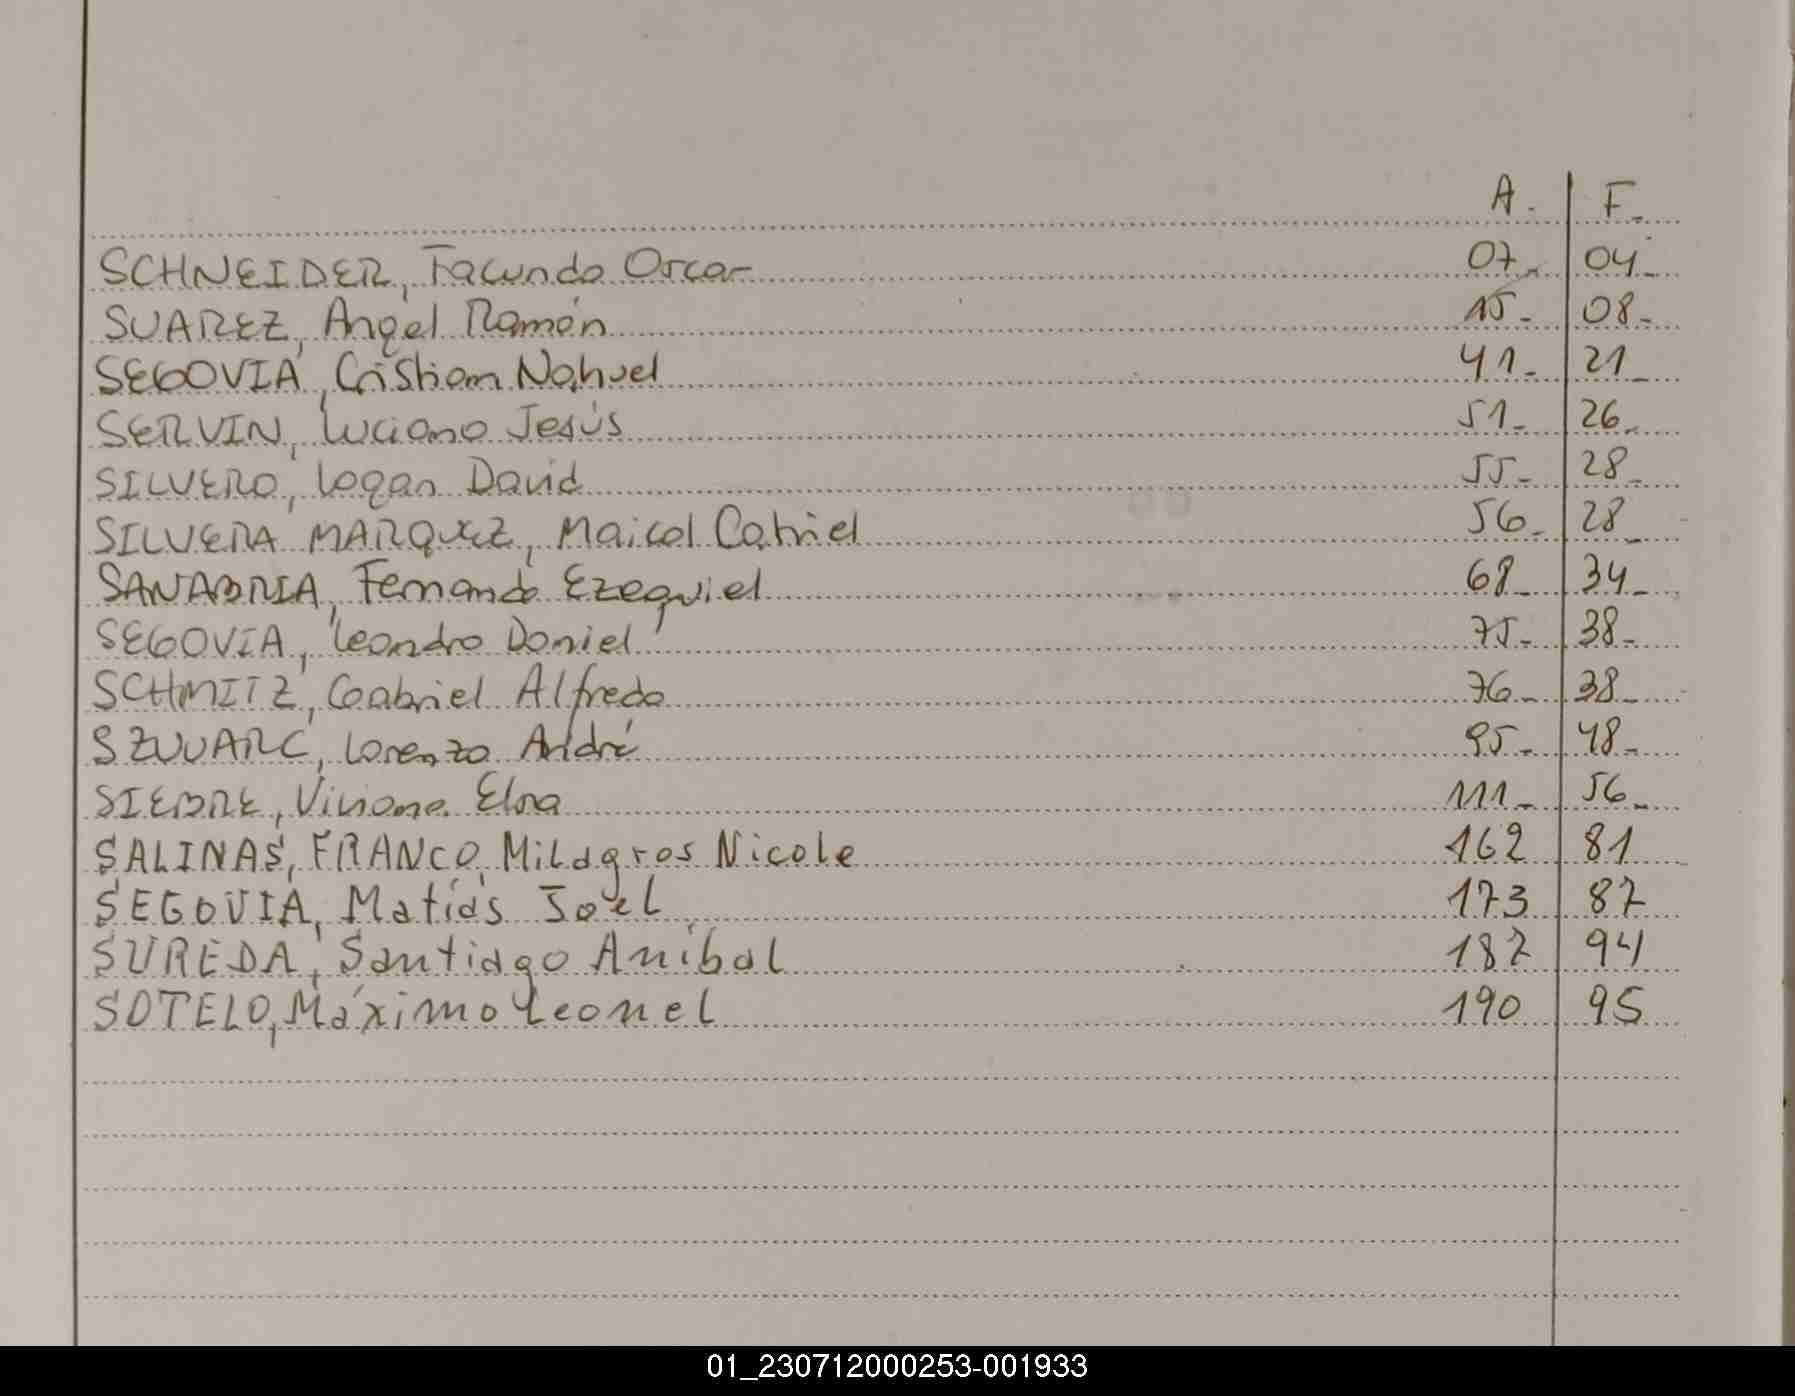 A. F.
SCHNEIDER, Facundo Oscar 07. 04.
SUAREZ, Angel Ramón 15. 08.
SEGOVIA, Cristian Nahuel 41. 21
SERVIN, Luciano Jesús 51. 26.
SILVERO, Logan David 55. 28.
SILVERA MARQUEZ, Maicol Catriel 56. 28
SANABRIA, Fernando Ezequiel 68. 34.
SEGOVIA, Leandro Daniel 75. 38.
SCHMITZ, Gabriel Alfredo 76. 38.
SZWARC, Lorenzo André 95. 48.
SIEBRE, Viviana Elsa 111. 56.
SALINAS, FRANCO, Milagros Nicole 162 81
SEGOVIA, Matías Joel 173 87
SUREDA, Santiago Anibal 187 94
SOTELO, Máximo Leonel 190 95
01_230712000253-001933